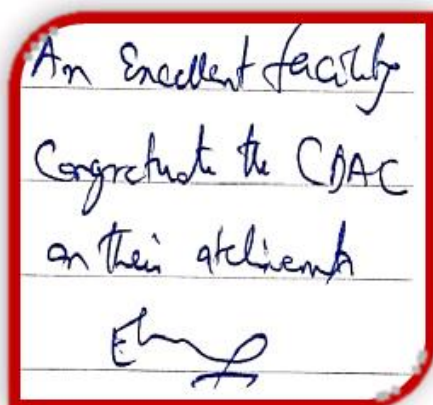 An Excellent facility
Congratulate the CDAC
on their achievements